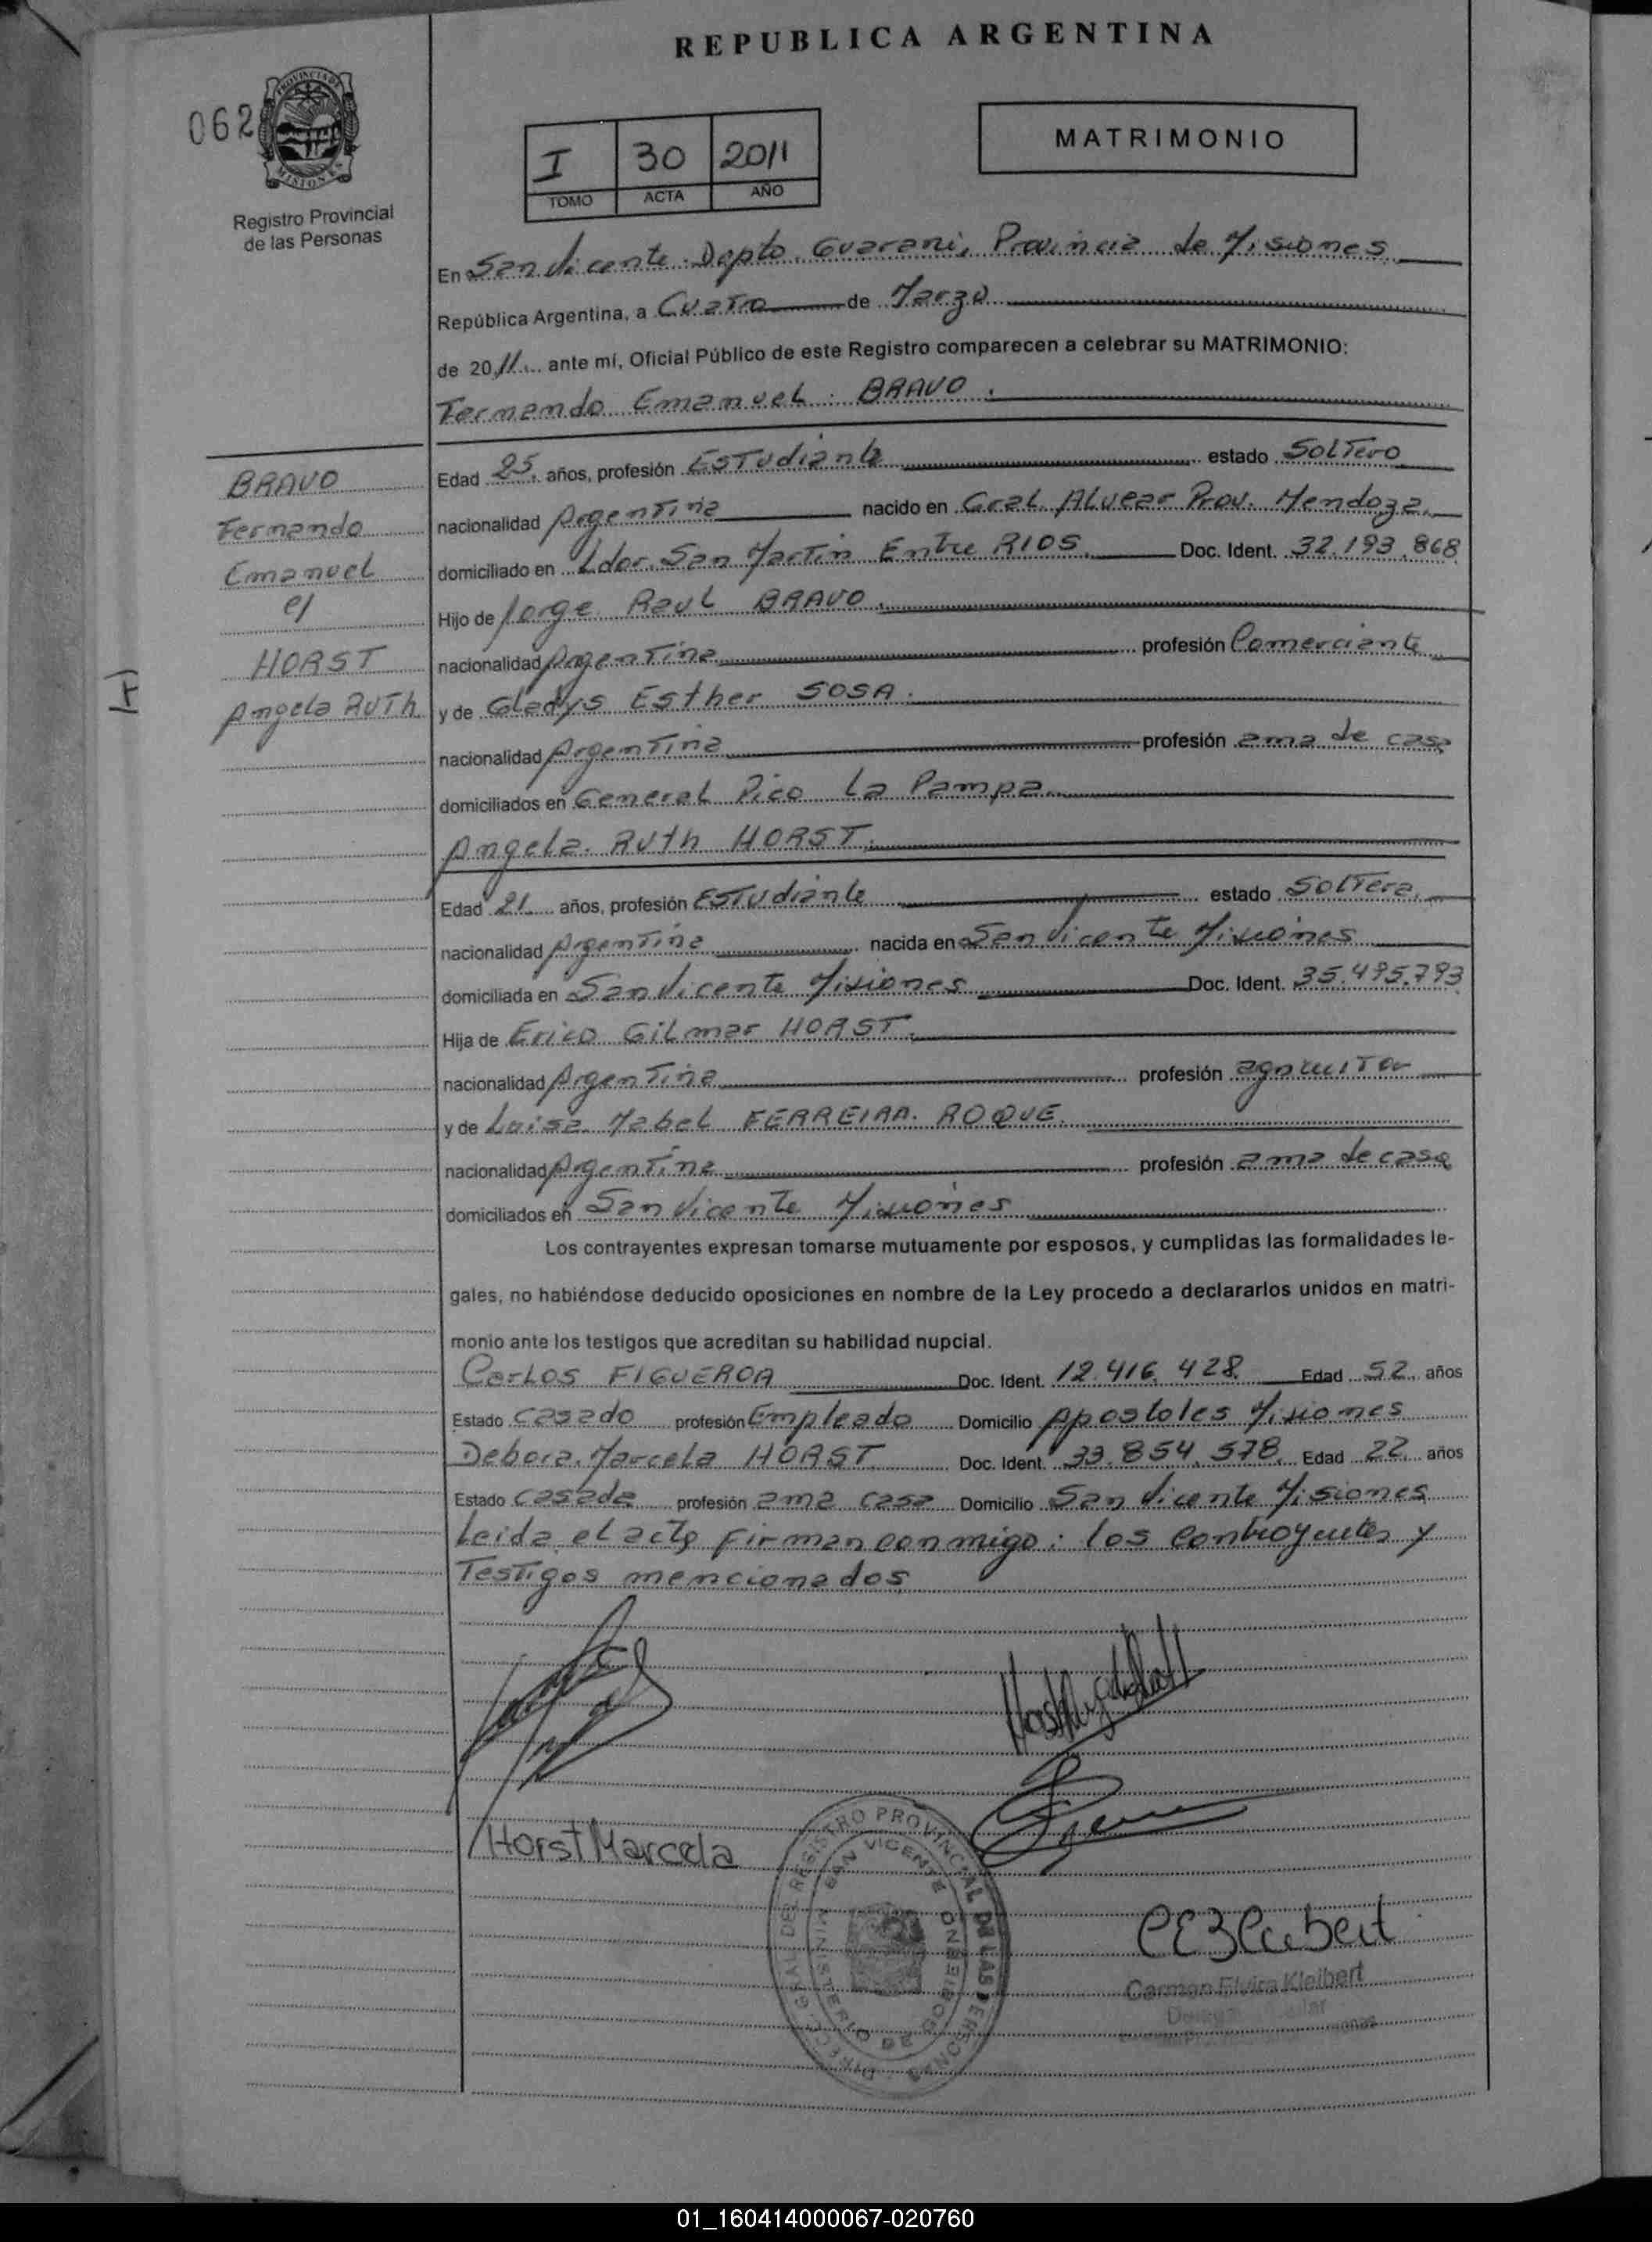 REPUBLICA ARGENTINA
062
PROVINCIA DE
MISIONES
Registro Provincial
de las Personas
I 30 2011
TOMO ACTA AÑO
MATRIMONIO
En San Vicente Dapto. Guarani, Provincia de Misiones
República Argentina, a Cuatro de Marzo
de 2011 ante mí, Oficial Público de este Registro comparecen a celebrar su MATRIMONIO:
Fernando Emanuel BRAVO.
BRAVO
Fernando
Emanuel
c/
HORST
Angela RUTh
Edad 25. años, profesión Estudiante estado Soltero
nacionalidad Argentina nacido en Gral. ALvear Prov. Mendoza.
domiciliado en Ldor. San Martin Entre RIOS. Doc. Ident. 32.193.868
Hijo de Jorge Raul BRAVO.
nacionalidad Argentina profesión Comerciante
y de Gladys Esther SOSA.
nacionalidad Argentina profesión ama de casa
domiciliados en General Pico La Pampa.
Angela RUth HORST.
Edad 21 años, profesión EsTudiante estado Soltera.
nacionalidad Argentina nacida en San Vicente Misiones
domiciliada en San Vicente Misiones Doc. Ident. 35.495.793
Hija de Erico GiLmar HORST.
nacionalidad Argentina profesión
y de Luisa Mabel FERREIRA ROQUE.
nacionalidad Argentina profesión ama de casa
domiciliados en San Vicente Misiones
Los contrayentes expresan tomarse mutuamente por esposos, y cumplidas las formalidades le-
gales, no habiéndose deducido oposiciones en nombre de la Ley procedo a declararlos unidos en matri-
monio ante los testigos que acreditan su habilidad nupcial.
CarLos FIGUEROA Doc. Ident. 12.416.428. Edad 52 años
Estado casado profesión Empleado Domicilio Apostoles Misiones
Debora Marcela HORST Doc. Ident. 33.854.578. Edad 22 años
Estado casada profesión ama casa Domicilio San Vicente Misiones
Leida el acta firman conmigo: los contrayentes y
Testigos mencionados
Horst Marcela
DIRECC. GRAL DEL REGISTRO PROVINCIAL DE LAS PERSONAS
SAN VICENTE
MINISTERIO DE GOBIERNO
Carmen Elvira Kleibert
01_160414000067-020760